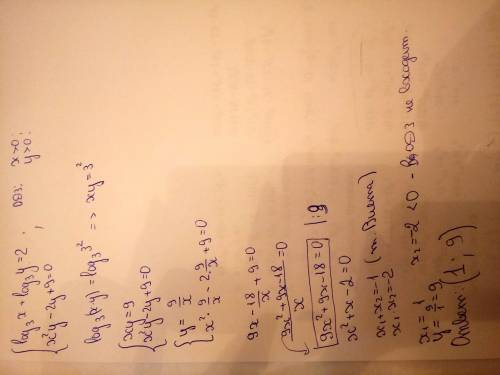 { log₃x + log₃y = 2 ; ОДЗ: x>0;
{ x²y - 2y + 9 = 0 y>0;
log₃(xy) = log₃3² => xy = 3²
{ xy = 9
{ x²y - 2y + 9 = 0
{ y = 9/x
{ x² · 9/x - 2 9/x + 9 = 0
9x - 18/x + 9 = 0
(9x² + 9x - 18)/x = 0
9x² + 9x - 18 = 0 | :9
x² + x - 2 = 0
x₁ + x₂ = -1 (т. Виета)
x₁ x₂ = -2
x₁ = 1 x₂ = -2 < 0 - в ОДЗ не входит.
y = 9/1 = 9
Ответ: (1; 9)